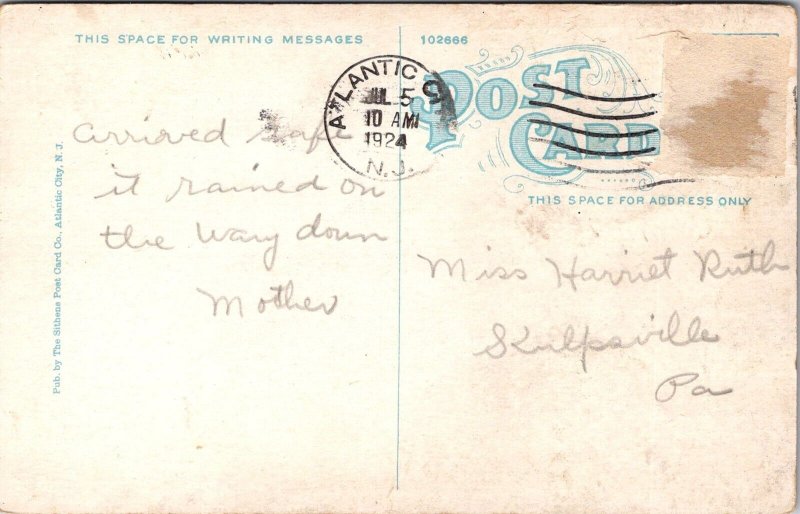 THIS SPACE FOR WRITING MESSAGES
102666
POST CARD
THIS SPACE FOR ADDRESS ONLY
ATLANTIC CI
JUL 5
10 AM
1924
N.J.
arrived safe
it rained on
the way down
Mother
Miss Harriet Ruth
Skulpsville
Pa
Pub. by The Sithens Post Card Co., Atlantic City, N. J.